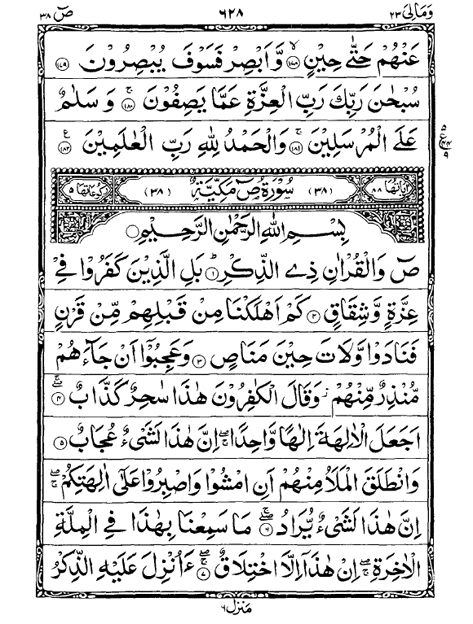 وَمَالِیَ ٢٣ ٦٢٨ صٓ ٣٨
عَنْهُمْ حَتّٰی حِیْنٍ ۙ﴿١٧٨﴾ وَّاَبْصِرْ فَسَوْفَ یُبْصِرُوْنَ ﴿١٧٩﴾
سُبْحٰنَ رَبِّكَ رَبِّ الْعِزَّةِ عَمَّا یَصِفُوْنَ ۚ﴿١٨٠﴾ وَسَلٰمٌ
عَلَی الْمُرْسَلِیْنَ ۚ﴿١٨١﴾ وَالْحَمْدُ لِلّٰهِ رَبِّ الْعٰلَمِیْنَ ﴿١٨٢﴾
اٰیَاتُهَا ٨٨ (٣٨) سُوْرَةُ صٓ مَکِّیَّةٌ (٣٨) رُکُوْعَاتُهَا ٥
بِسْمِ اللّٰهِ الرَّحْمٰنِ الرَّحِیْمِ
صٓ وَالْقُرْاٰنِ ذِی الذِّکْرِ ؕ﴿١﴾ بَلِ الَّذِیْنَ کَفَرُوْا فِیْ
عِزَّةٍ وَّشِقَاقٍ ﴿٢﴾ کَمْ اَهْلَکْنَا مِنْ قَبْلِهِمْ مِّنْ قَرْنٍ
فَنَادَوْا وَّلَاتَ حِیْنَ مَنَاصٍ ﴿٣﴾ وَعَجِبُوْۤا اَنْ جَآءَهُمْ
مُّنْذِرٌ مِّنْهُمْ ؗ وَقَالَ الْکٰفِرُوْنَ هٰذَا سٰحِرٌ کَذَّابٌ ۖۚ﴿٤﴾
اَجَعَلَ الْاٰلِهَةَ اِلٰهًا وَّاحِدًا ۖۚ اِنَّ هٰذَا لَشَیْءٌ عُجَابٌ ﴿٥﴾
وَانْطَلَقَ الْمَلَاُ مِنْهُمْ اَنِ امْشُوْا وَاصْبِرُوْا عَلٰۤی اٰلِهَتِکُمْ ۖۚ
اِنَّ هٰذَا لَشَیْءٌ یُّرَادُ ۖۚ﴿٦﴾ مَا سَمِعْنَا بِهٰذَا فِی الْمِلَّةِ
الْاٰخِرَةِ ۖۚ اِنْ هٰذَاۤ اِلَّا اخْتِلَاقٌ ۖۚ﴿٧﴾ ءَاُنْزِلَ عَلَیْهِ الذِّکْرُ
مَنْزِل ٦